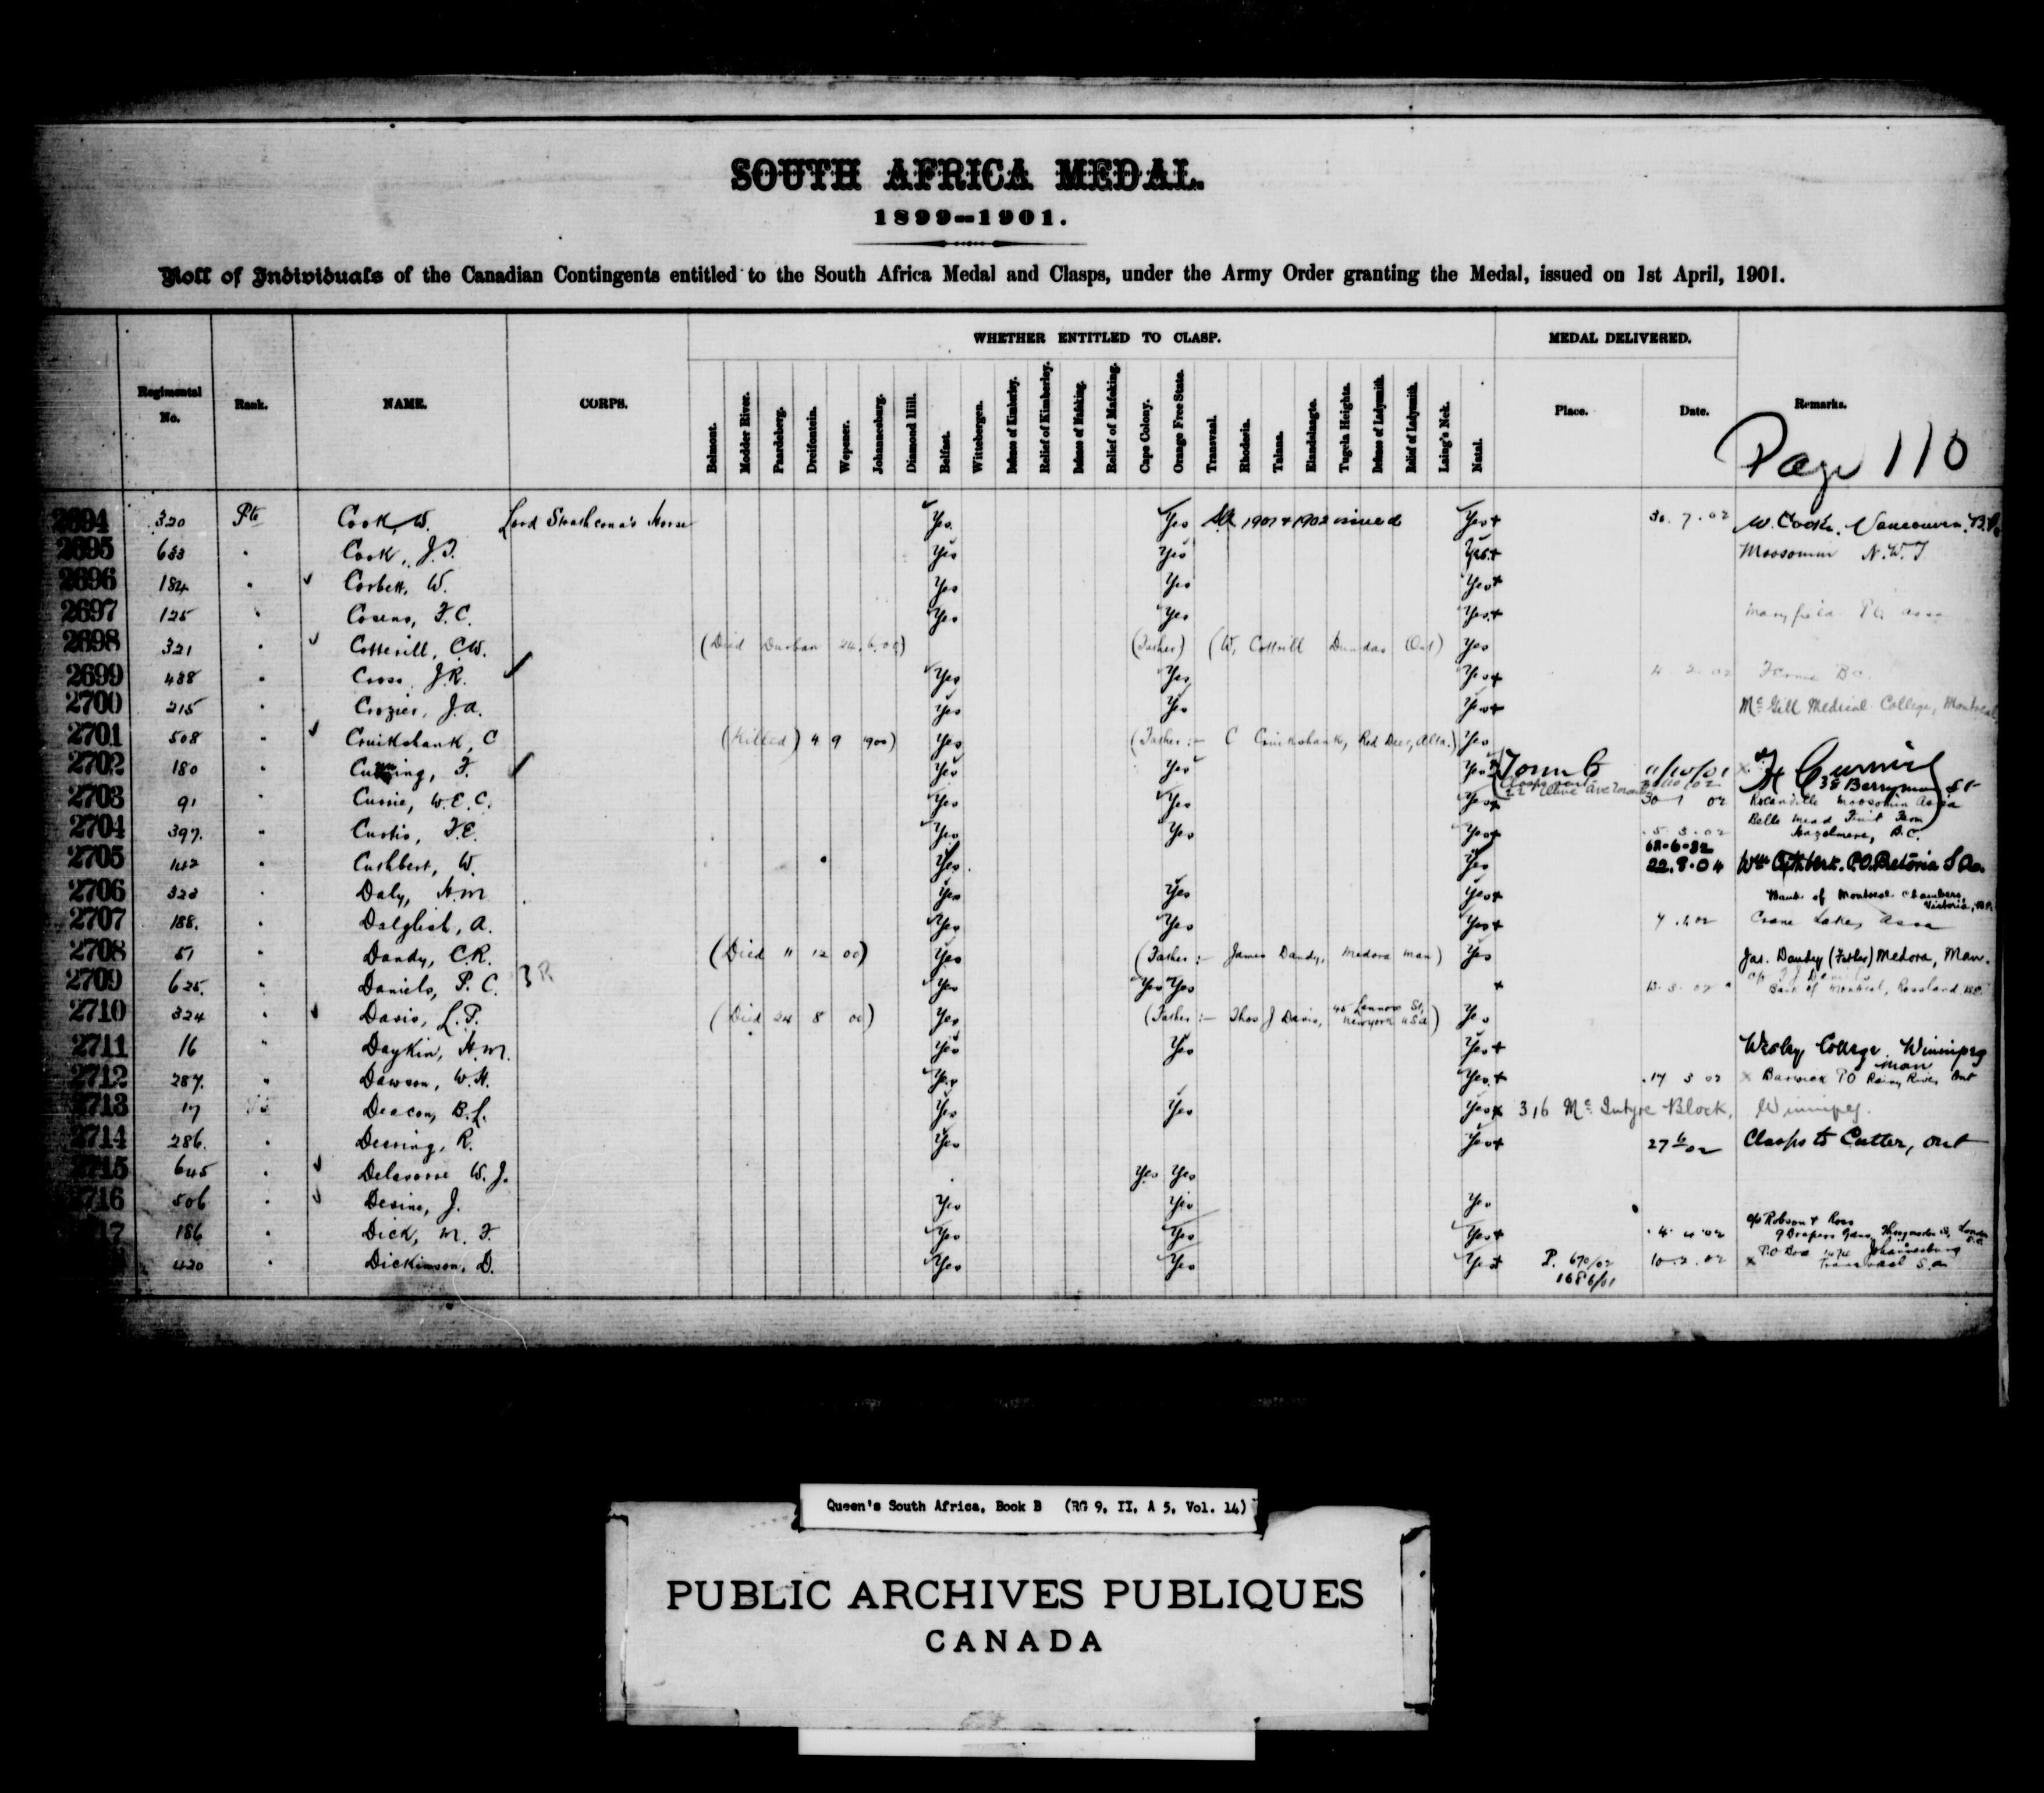 SOUTH AFRICA MEDAL.
1899-1901.
Roll of Individuals of the Canadian Contingents entitled to the South Africa Medal and Clasps, under the Army Order granting the Medal, issued on 1st April, 1901.
WHETHER ENTITLED TO CLASP. MEDAL DELIVERED.
Regimental No. Rank. NAME. CORPS. Belmont. Modder River. Paardeberg. Dreifontein. Wepener. Johannesburg. Diamond Hill. Belfast. Wittebergen. Defense of Kimberley. Relief of Kimberley. Defense of Mafeking. Relief of Mafeking. Cape Colony. Orange Free State. Transvaal. Rhodesia. Talana. Elandslaagte. Tugela Heights. Defense of Ladysmith. Relief of Ladysmith. Laing's Nek. Natal. Place. Date. Remarks.
Page 110
2694 320 Pte Cook, W. Lord Strathcona's Horse Yes Yes SA 1901 & 1902 issued Yes + 30.7.02 W. Cook, Vancouver, B.C.
2695 633 " Cook, J.T. Yes Yes Yes + Moosomin N.W.T
2696 184 " Corbett, W. Yes Yes Yes +
2697 125 " Cosens, F.C. Yes Yes Yes +
2698 321 " Cotterill, C.W. (Died Durban 24.6.00) (Father) (W. Cottrill Dundas Ont) Yes
2699 488 " Cross, J.R. Yes Yes Yes + 4.2.02 Fernie BC
2700 215 " Crozier, J.A. Yes Yes Yes + McGill Medical College, Montreal
2701 508 " Cruikshank, C (Killed) 4 9 1900) Yes (Father :- C Cruikshank, Red Deer, Alta.) Yes
2702 180 " F. Yes Yes Yes 11/10/01
38 Berryman St
2703 91 " Currie, W.E.C. Yes Yes Yes + 30 1 02 Moosomin Assa
2704 397. " Curtis, F.E. Yes Yes Yes + 5.3.02 Belle Mead Fruit Farm
Hazelmere, B.C.
2705 142 " Cuthbert, W. Yes Yes 22.8.04 Wm Cuthbert. P.O. Pretoria S Af.
2706 323 " Daly, H.M Yes Yes Yes + Bank of Montreal Chambers,
Victoria, B.C.
2707 188. " Dalglish, A. Yes Yes Yes + Crane Lake, Assa
2708 51 " Dandy, C.R. (Died 11 12 00) Yes (Father :- James Dandy, Medora Man) Yes Jas. Dandy (Father) Medora, Man.
2709 625. " Daniels, P. C. 3 R Yes Yes Yes + Bank of Montreal, Rossland B.C.
2710 324 " Davis, L.P. (Died 24 8 00) Yes (Father :- Thos J Davis, 45 Lennox St, New York USA) Yes
2711 16 " Daykin, H.M. Yes Yes Yes + Wesley College, Winnipeg
Man
2712 287. " Dawson, W.H. Yes Yes + 17 3 02 x Barwick PO Rainy River Ont
2713 17 Deacon, B.L. Yes Yes Yes x 316 McIntyre Block, Winnipeg.
2714 286. " Deering, R. Yes Yes + 27 6/02 Clasps to Cutter, Ont
2715 645 " W.J. Yes Yes
2716 506 " Devine, J. Yes Yes Yes
17 186 " Dick, M.F. Yes Yes Yes + 4.4.02 c/o Robson & Ross
420 " Dickinson, D. Yes Yes Yes + P. 670/02 10.2.02 x P.O Box 1474 Johannesburg
1686/01 Transvaal S.A
Queen's South Africa, Book B (RG 9, II, A 5, Vol. 14)
PUBLIC ARCHIVES PUBLIQUES
CANADA